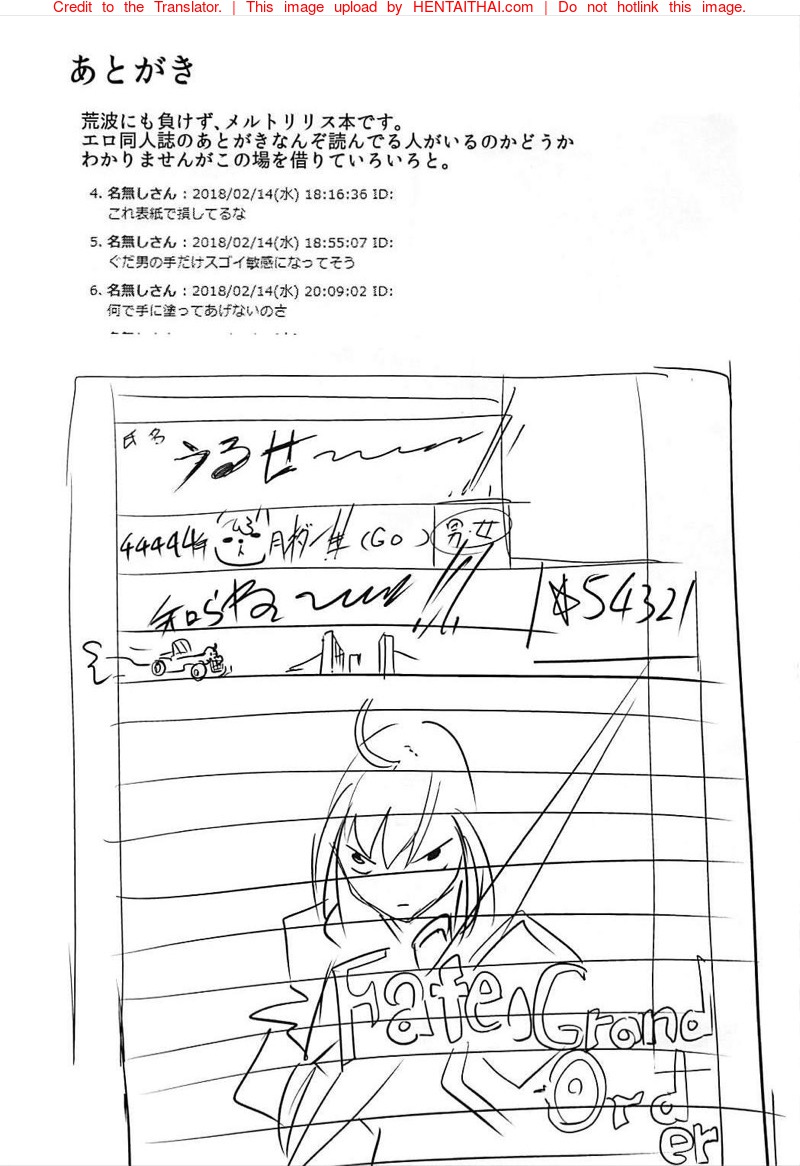 Credit to the Translator. | This image upload by HENTAITHAI.com | Do not hotlink this image.
あとがき
荒波にも負けず、メルトリリス本です。
エロ同人誌のあとがきなんぞ読んでる人がいるのかどうか
わかりませんがこの場を借りていろいろと。
4. 名無しさん : 2018/02/14(水) 18:16:36 ID:
これ表紙で損してるな
5. 名無しさん : 2018/02/14(水) 18:55:07 ID:
ぐだ男の手だけスゴイ敏感になってそう
6. 名無しさん : 2018/02/14(水) 20:09:02 ID:
何で手に塗ってあげないのさ
氏名
うるせ
44444年
月 (Go) 男 女
知らね
¥54321
Fate
Grand
Order